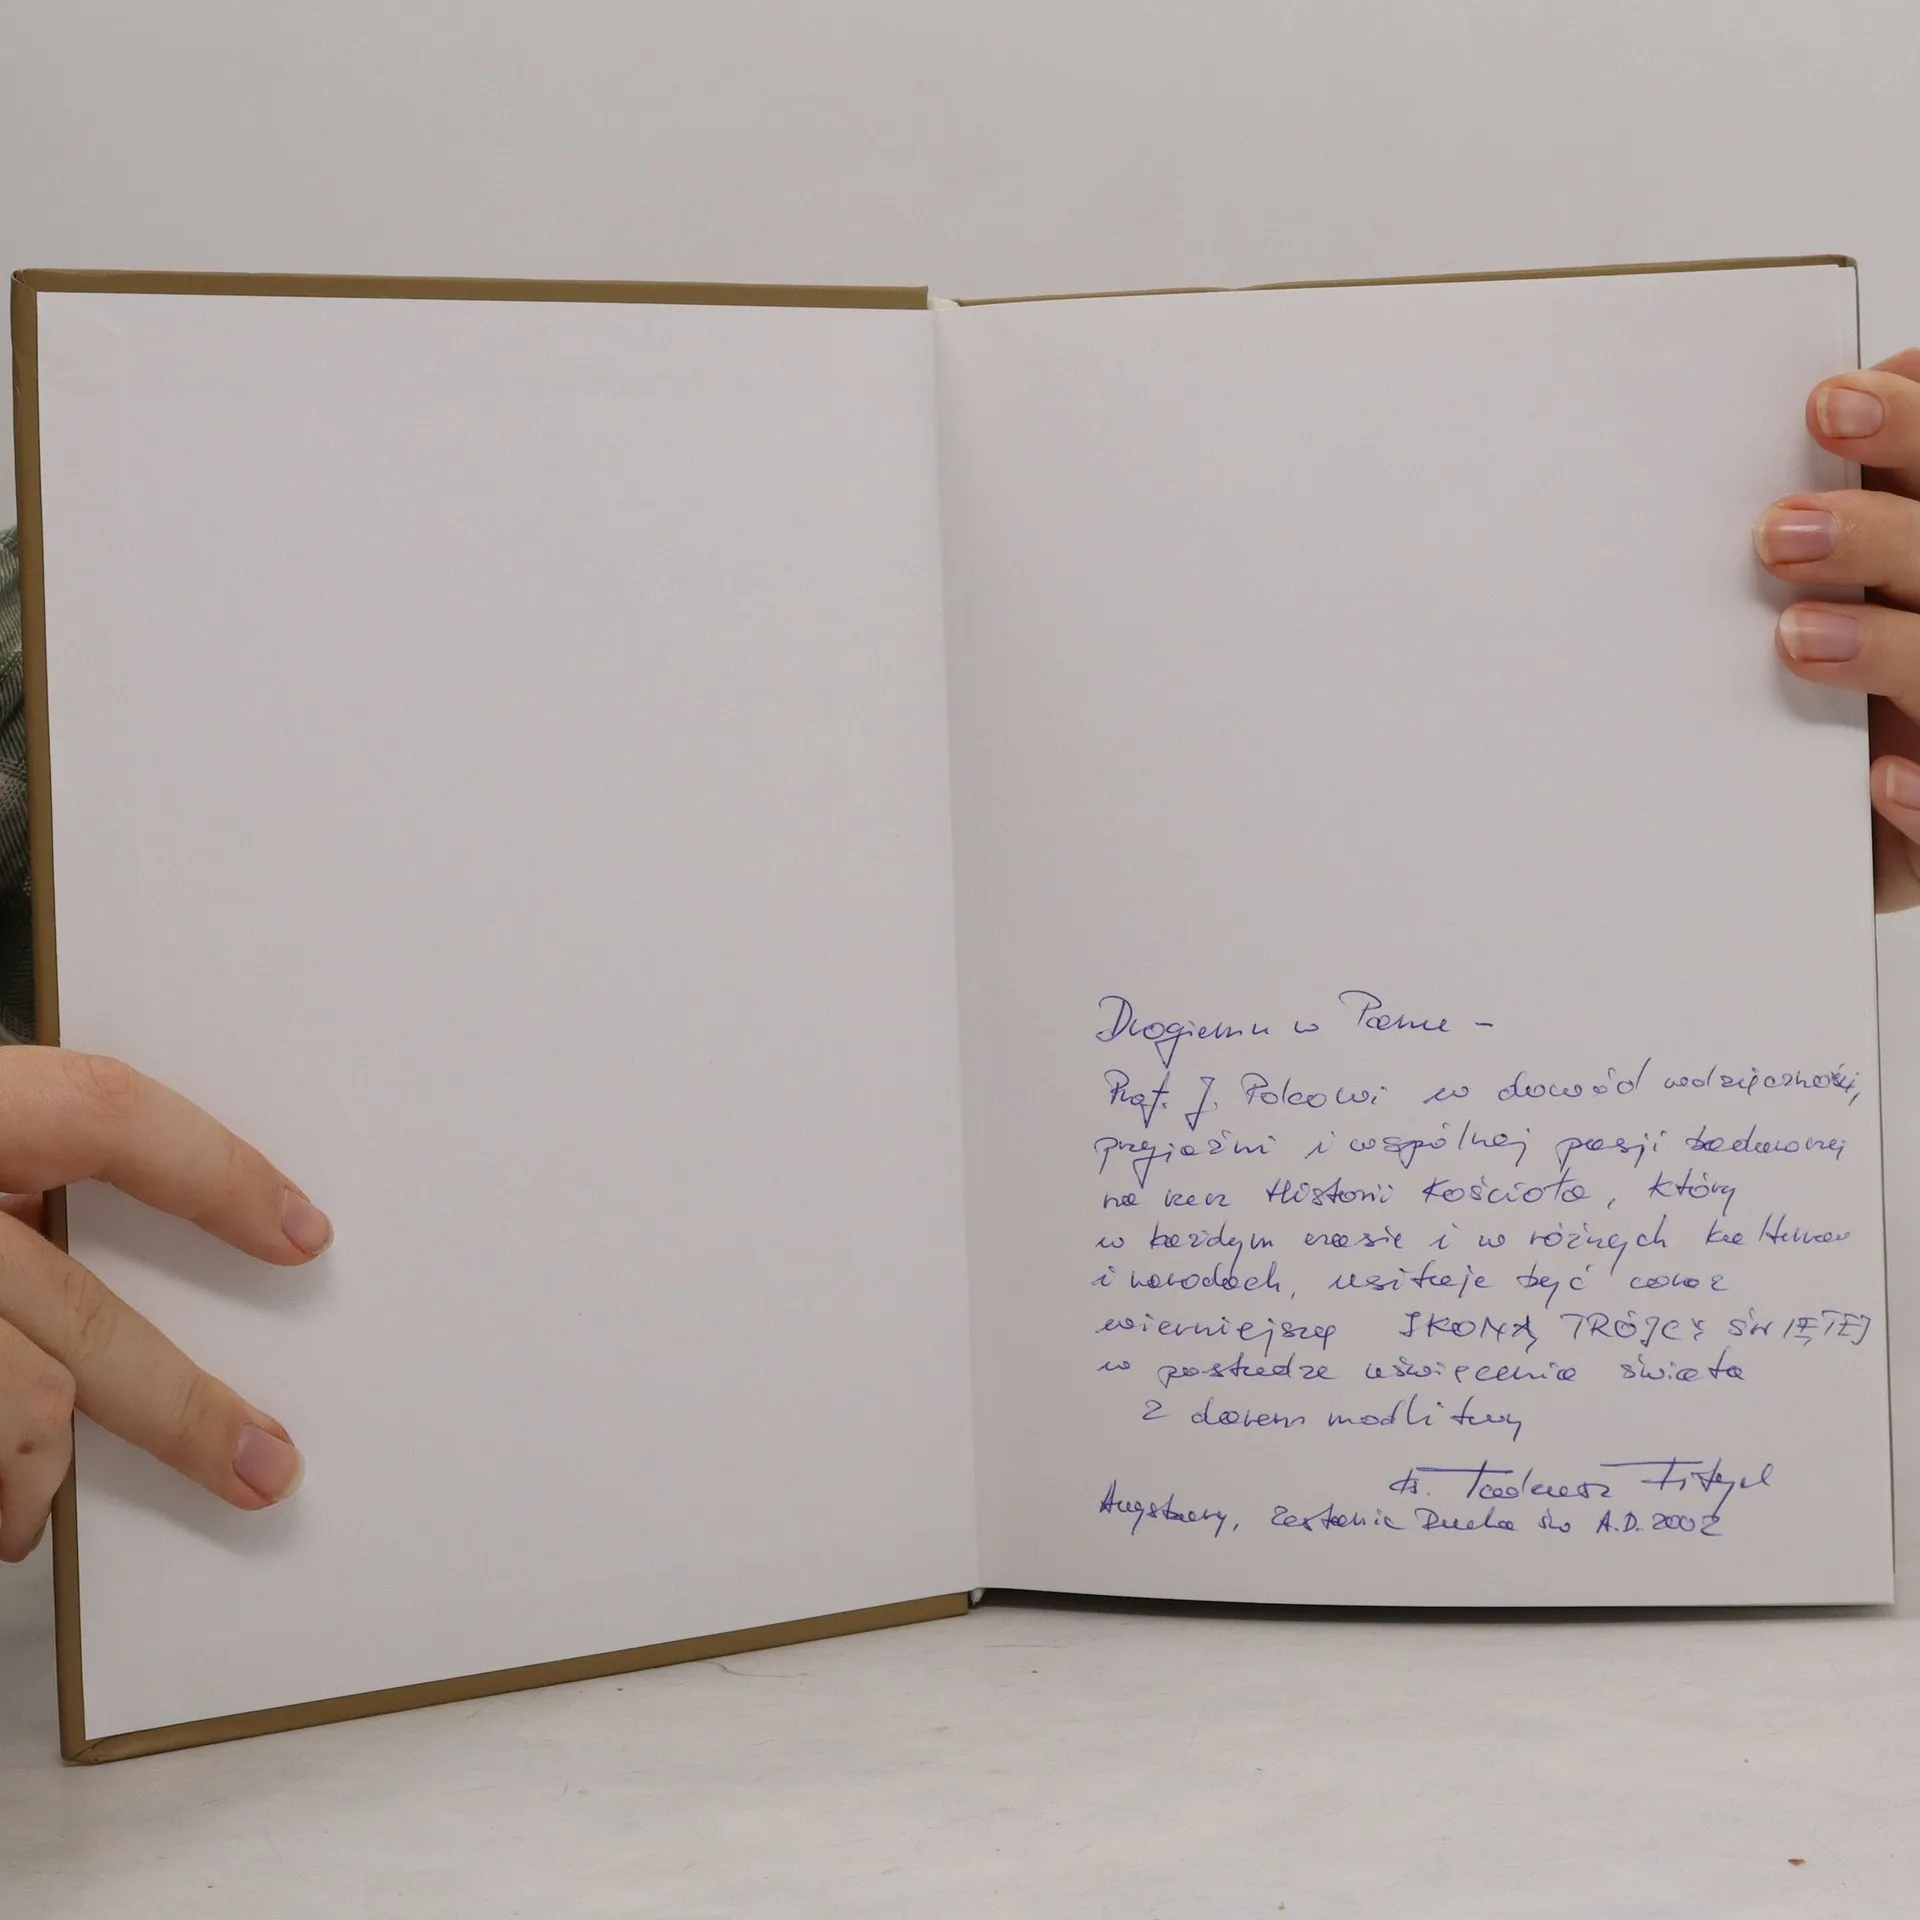 Drogiemu w Panu –
Prof. J. Polcowi w dowód wdzięczności,
przyjaźni i wspólnej pasji badawczej
na rzecz Historii Kościoła, który
w każdym czasie i w różnych kulturach
i narodach, usiłuje być coraz
wierniejszą IKONĄ TRÓJCY ŚWIĘTEJ
w posłudze uświęcenia świata
Z darem modlitwy
ks. Tadeusz Fitych
Augsburg, Zesłanie Ducha Św A.D. 2002